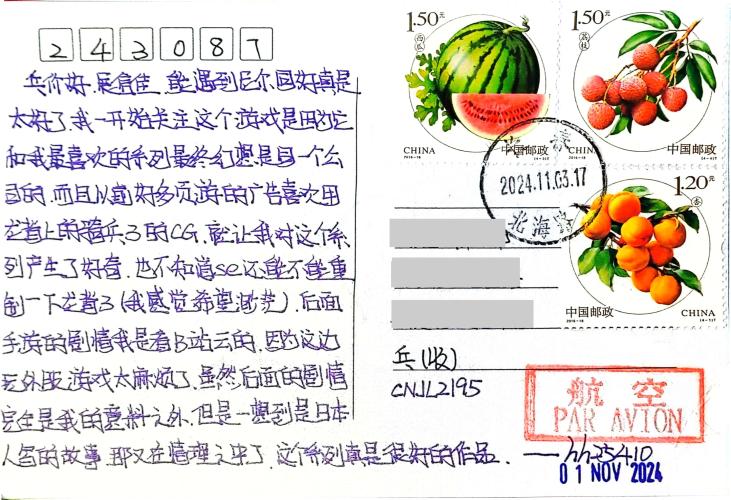 243087
兵你好，展信佳，能遇到尼尔同好真是
太好了，我一开始关注这个游戏是因为它
和我最喜欢的系列最终幻想是同一个公
司的，而且以前好多页游的广告喜欢用
龙背上的骑兵3的CG，就让我对这个系
列产生了好奇，也不知道se还能不能重
制一下龙背3（我感觉希望渺茫）。后面
手游的剧情我是看B站云的，因为这边
玩外服游戏太麻烦了，虽然后面的剧情
完全是我的意料之外，但是一想到是日本
人写的故事，那又在情理之中了，这个系列真是很好的作品。——hh25410
1.50元
西瓜
CHINA
中国邮政
1.50元
荔枝
CHINA
中国邮政
1.20元
杏
中国邮政
CHINA
2024.11.03.17
北海
兵（收）
CNJL2195
航空
PAR AVION
01 NOV 2024